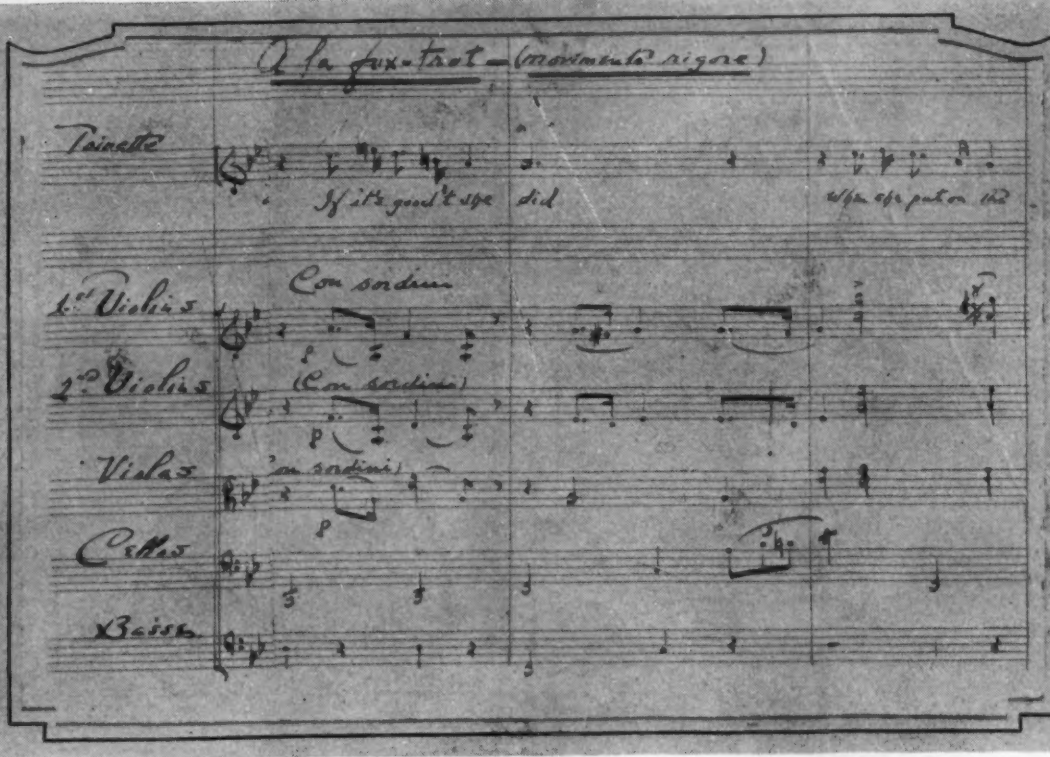 A la fox-trot – (movimento rigore)
Toinette
If it's good 't she did
When she put on the
Con sordini
1st Violins
(Con sordini)
2nd Violins
Con sordini)
Violas
Cellos
Basses